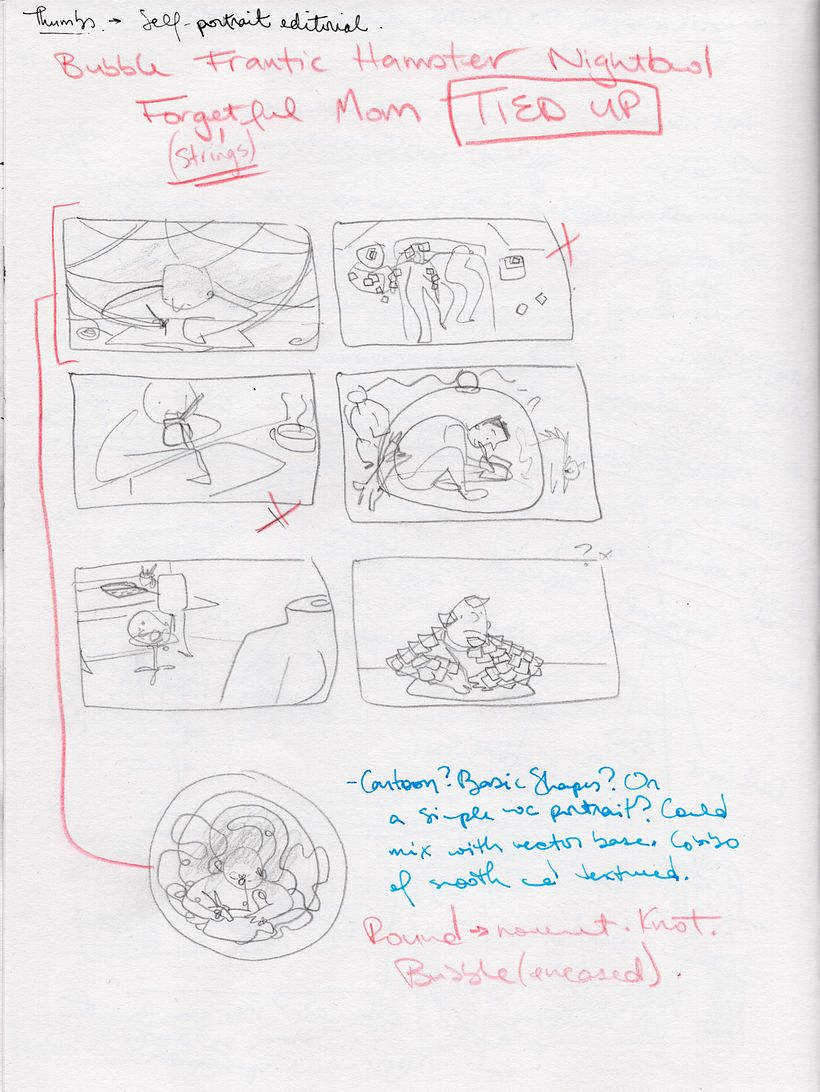 Thumbs. → Self-portrait editorial.
Bubble Frantic Hamster Nightbowl
Forgetful Mom TIED UP
(Strings)
? x
- Cartoon? Basic Shapes? Or
a simple wc portrait? Could
mix with vector base. Combo
of smooth and textured.
Round → movement. Knot.
Bubble (encased).